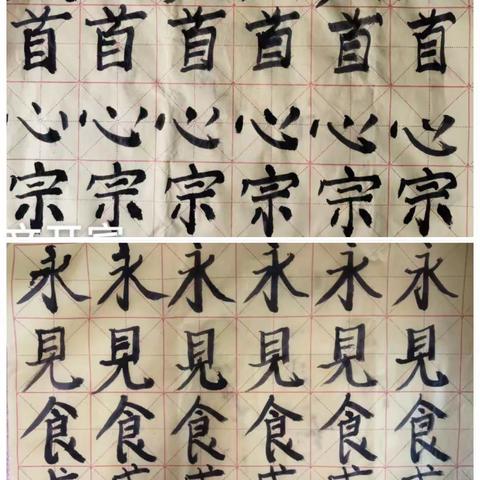 首首首首首首
心心心心心心
宗宗宗宗宗宗
永永永永永永
見見見見見見
食食食食食食